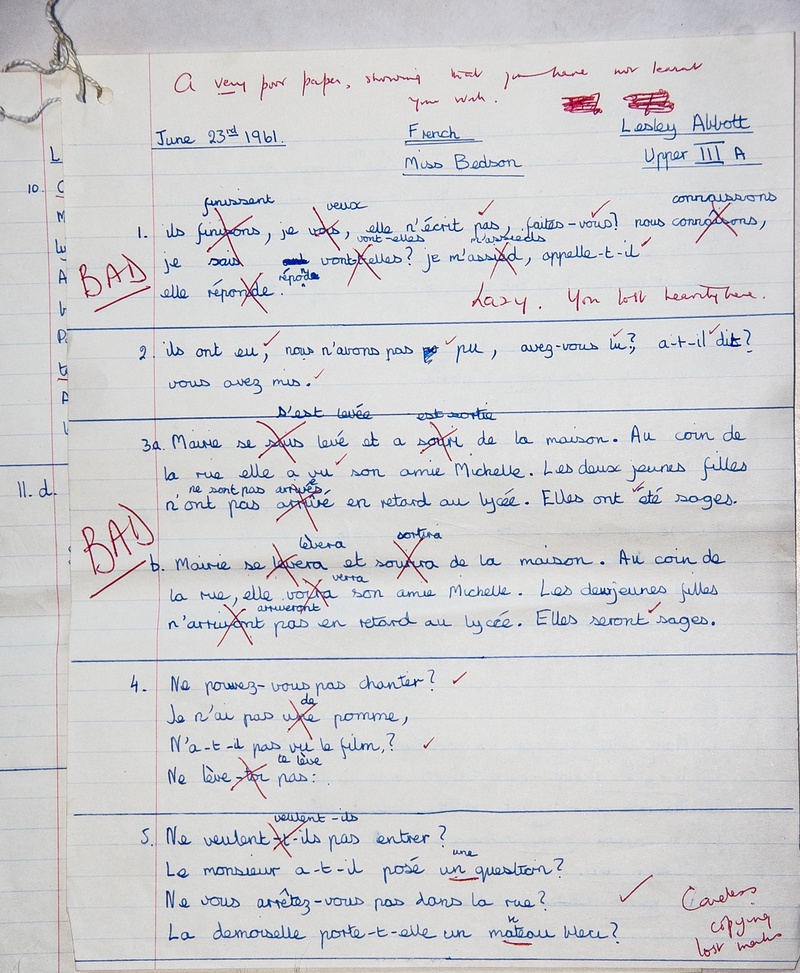 A very poor paper, showing that you have not learnt
your work.
June 23rd 1961. French Lesley Abbott
Miss Bedson Upper III A
L
10.
finissent veux connaissons
1. ils finisons, je vous, elle n'écrit pas, faites-vous? nous connaîsons,
vont-elles m'assieds
je sais vont-elles? je m'assied, appelle-t-il
BAD
elle réponde.
Lazy. You lost heavily here.
2. ils ont eu, nous n'avons pas pu, avez-vous lu?, a-t-il dit?
vous avez mis.
s'est levée est sortie
3a. Mairie se sous levé et a sorti de la maison. Au coin de
la rue elle a vu son amie Michelle. Les deux jeunes filles
ne sont pas arrivés
n'ont pas arrivé en retard au lycée. Elles ont été sages.
11. d.
BAD
lèvera sortira
b. Mairie se lèvera et de la maison. Au coin de
verra
la rue, elle voira son amie Michelle. Les deux jeunes filles
arriveront
n'arrivont pas en retard au lycée. Elles seront sages.
4. Ne pouvez-vous pas chanter?
de
Je n'ai pas une pomme,
N'a-t-il pas vu le film,?
te lève
Ne lève-toi pas:
veulent-ils
5. Ne veulent-t-ils pas entrer?
une
Le monsieur a-t-il posé un question?
Ne vous arrêtez-vous pas dans la rue?
n
La demoiselle porte-t-elle un mateau bleu?
Careless
copying
lost marks